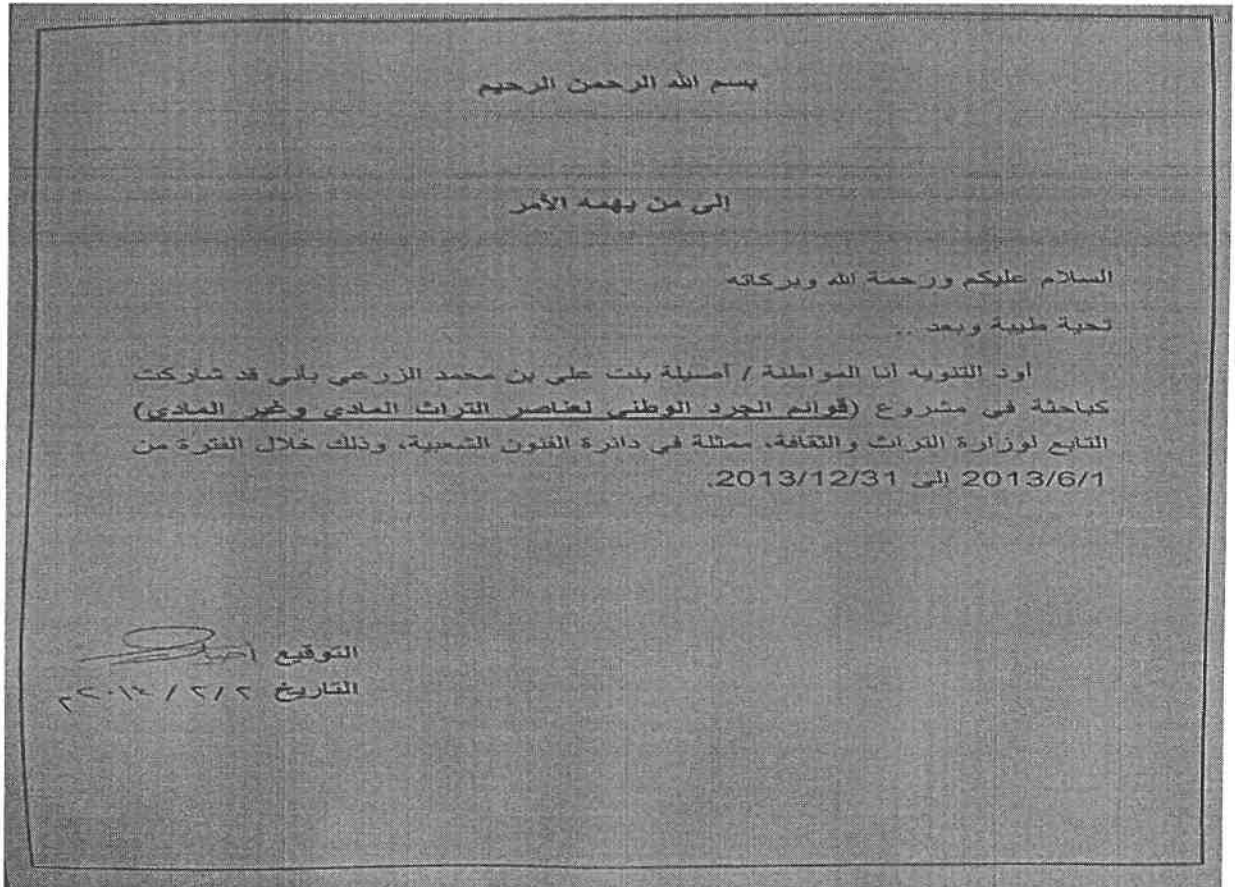 بسم الله الرحمن الرحيم
إلى من يهمه الأمر
السلام عليكم ورحمة الله وبركاته
تحية طيبة وبعد ..
أود التنويه أنا المواطنة / أصيلة بنت علي بن محمد الزرعي بأني قد شاركت
كباحثة في مشروع (قوائم الجرد الوطني لعناصر التراث المادي وغير المادي)
التابع لوزارة التراث والثقافة، ممثلة في دائرة الفنون الشعبية، وذلك خلال الفترة من
2013/6/1 إلى 2013/12/31.
التوقيع
التاريخ ٢/٢ / ٢٠١٤م